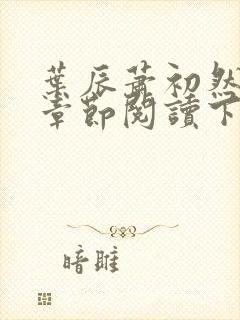 葉辰蕭初然
章節閱讀下
暗雎